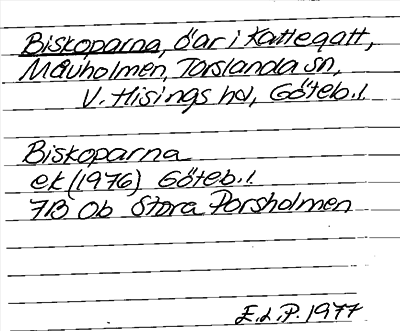 Biskoparna, öar i Kattegatt,
Måvholmen, Torslanda sn,
V. Hisings hd, Göteb. l.
Biskoparna
ek (1976) Göteb. l.
7B 0b Stora Porsholmen
E.L.P. 1977